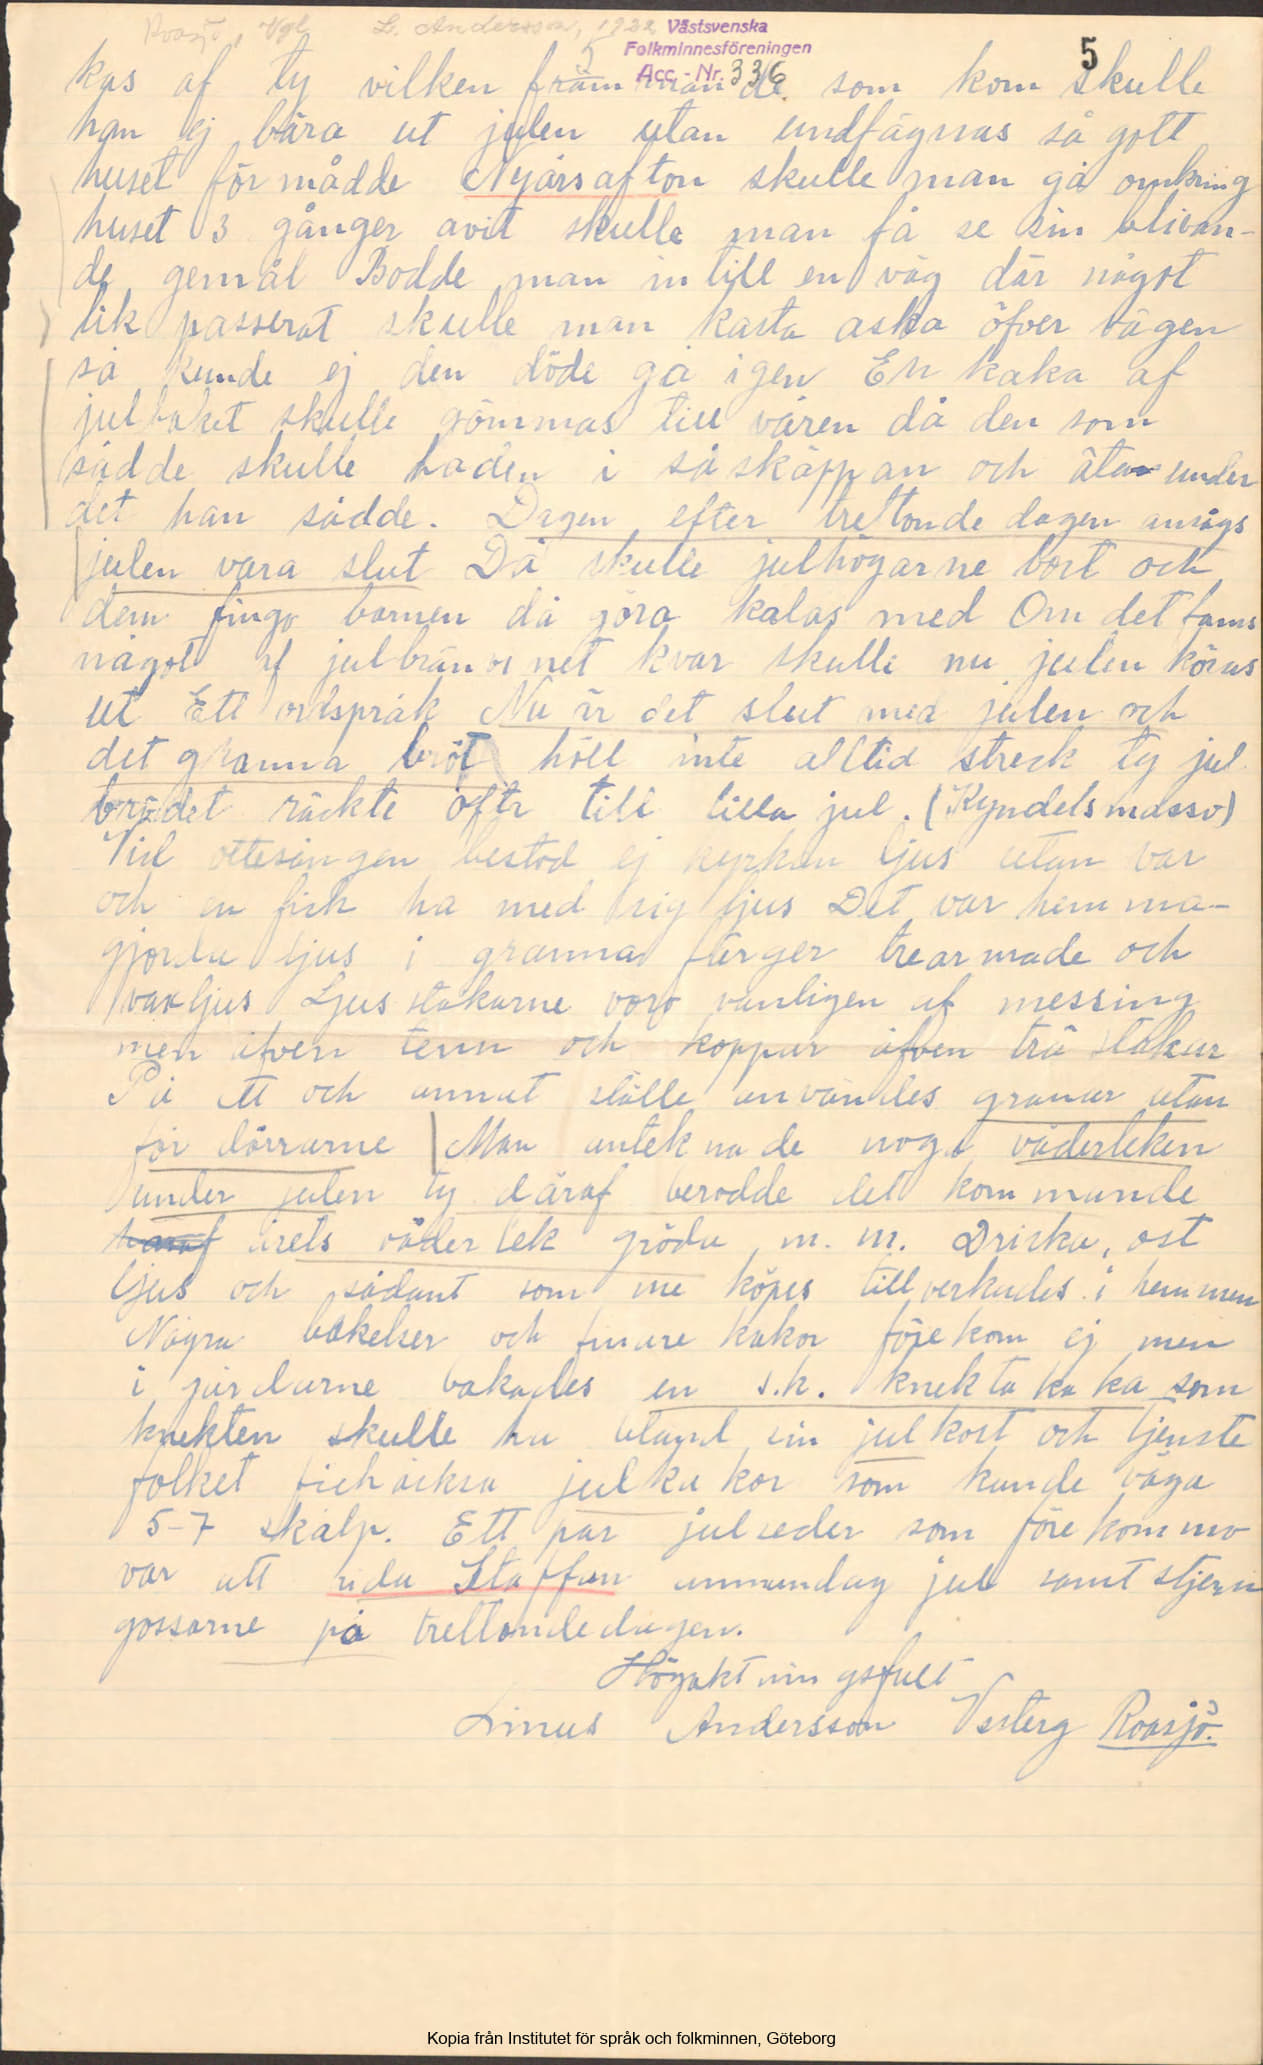 Roasjö, Vgl L. Andersson, 1922 Västsvenska
Folkminnesföreningen
Acc.-Nr. 336
5
5
kas af ty vilken främmande som kom skulle
han ej bära ut julen utan undfägnas så gott
huset förmådde Nyårsafton skulle man gå omkring
huset 3 gånger avit skulle man få se sin blivan-
de gemål Bodde man intill en väg där något
lik passerat skulle man kasta aska öfver vägen
så kunde ej den döde gå igen En kaka af
julbaket skulle gömmas till våren då den som
sådde skulle haden i såskäppan och äta under
det han sådde. Dagen efter trettonde dagen ansågs
julen vara slut Då skulle julhögarne bort och
dem fingo barnen då göra kalas med Om det fanns
något af julbränvinet kvar skulle nu julen köras
ut Ett ordspråk Nu är det slut med julen och
det granna bröt höll inte alltid streck ty jul
brödet räckte ofta till lilla jul. (Kyndelsmasso)
Vid ottesången bestod ej kyrkan ljus utan var
och en fick ha med sig ljus Det var hemma-
gjorda ljus i granna färger trearmade och
vaxljus Ljusstakarne voro vanligen af messing
men äfven tenn och koppar äfven trä stakar
På ett och annat ställe användes granar utan
för dörrarne Man anteknade noga väderleken
under julen ty däraf berodde det kommande
årets väderlek gröda m. m. Dricka, ost
ljus och sådant som nu köpes tillverkades i hemmen
Några bakelser och finare kakor förekom ej men
i gårdarne bakades en s.k. knektakaka som
knekten skulle ha bland sin julkost och tjenste
folket fick äcksa julkakor som kunde väga
5-7 skålp. Ett par julseder som förekommo
var att rida Staffan annandag jul samt stjern
gossarne på trettondedagen.
Högaktningsfullt
Linus Andersson Vesterg Roasjö.
Kopia från Institutet för språk och folkminnen, Göteborg